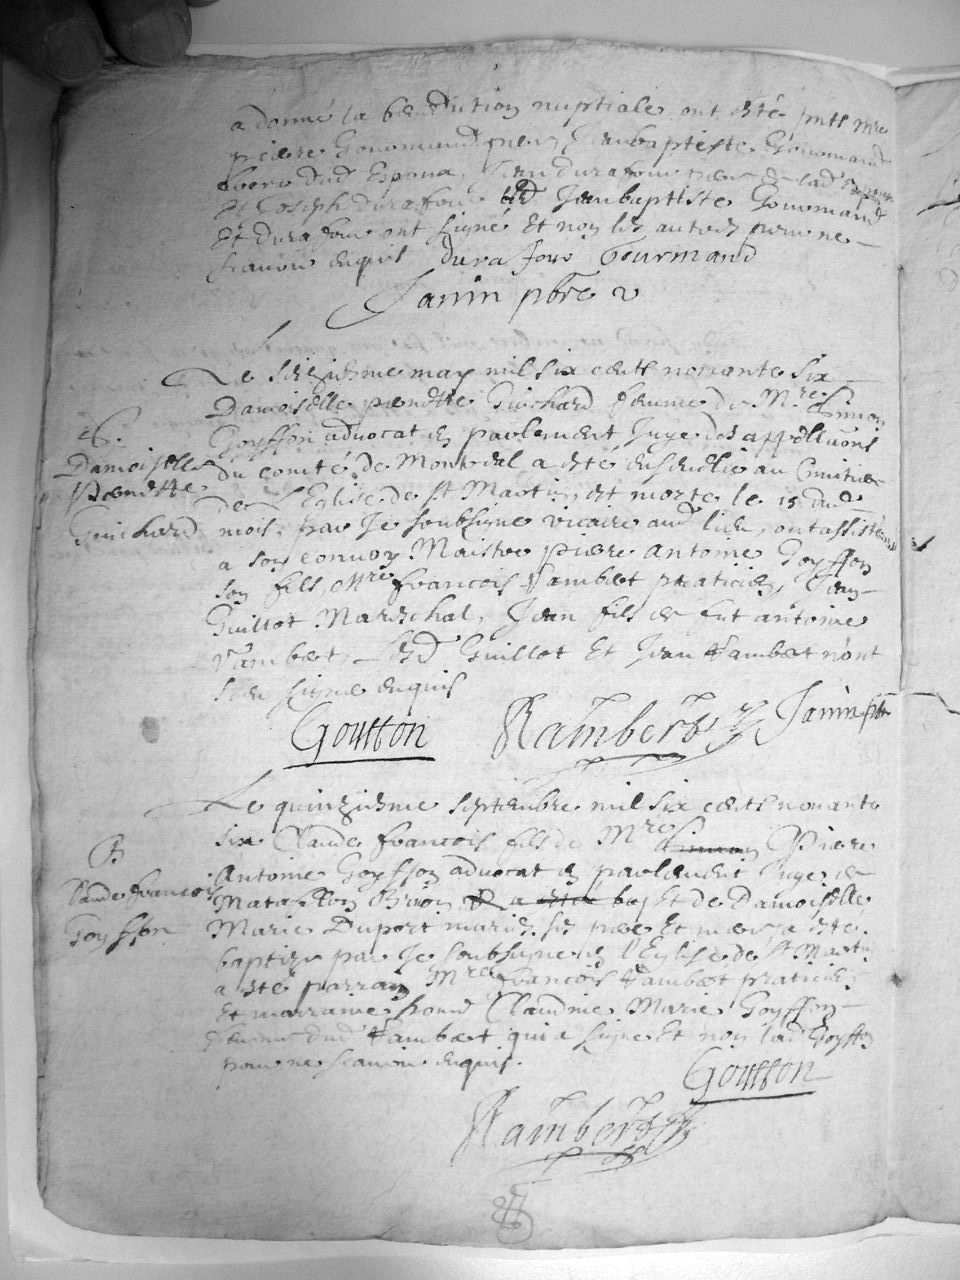 a donné la benediction nuptiale, ont esté pnts Mre
pierre Gouvmand Jeanbaptiste Gouvmand
frere dud Espoux, Jean durafour pere de lad Espouse
Et Joseph durafour Jeanbaptiste Gouvmand
Et durafour ont signé Et non les autres pour ne
scavoir enquis durafour Gourmand
Janin pbre v
Le seizieme may mil six cents nonante six
Damoiselle pernette Guichard femme de Mre Simon
Goyffon advocat en parlement Juge des appellaons
du comté de Montreal a esté ensevelie au Cimitiere
de l'Eglise de st Martin Est morte le 15 dud
mois, par Je soubsigné vicaire aud lieu, ont assisté
a son convoy Maistre pierre Antoine Goyffon
son fils, Mre francois Rambert praticien, Jean
Guillot Mareschal, Jean fils de fut antoine
Rambert, Led Guillot Et Jean Rambert n'ont
sceu signe enquis
Goiffon Rambert Janin pbre
S.
Damoiselle
pernette
Guichard
Le quinzieme septembre mil six cents nonante
six Claude francois fils de Mre Simon Pierre
Antoine Goyffon advocat en parlement Juge de
Matafelon Brion Et de Damoiselle
Marie Duport mariés ses pere Et mere a esté
baptize par Je soubsigné en l'Eglise de st Martin
a esté parrain Mre francois Rambert praticien
Et marraine honn Claudine Marie Goyffon
femme dud Rambert qui a signe Et non lad Goyffon
pour ne scavoir enquis.
B
Claude francois
Goyffon
Goiffon
Rambert